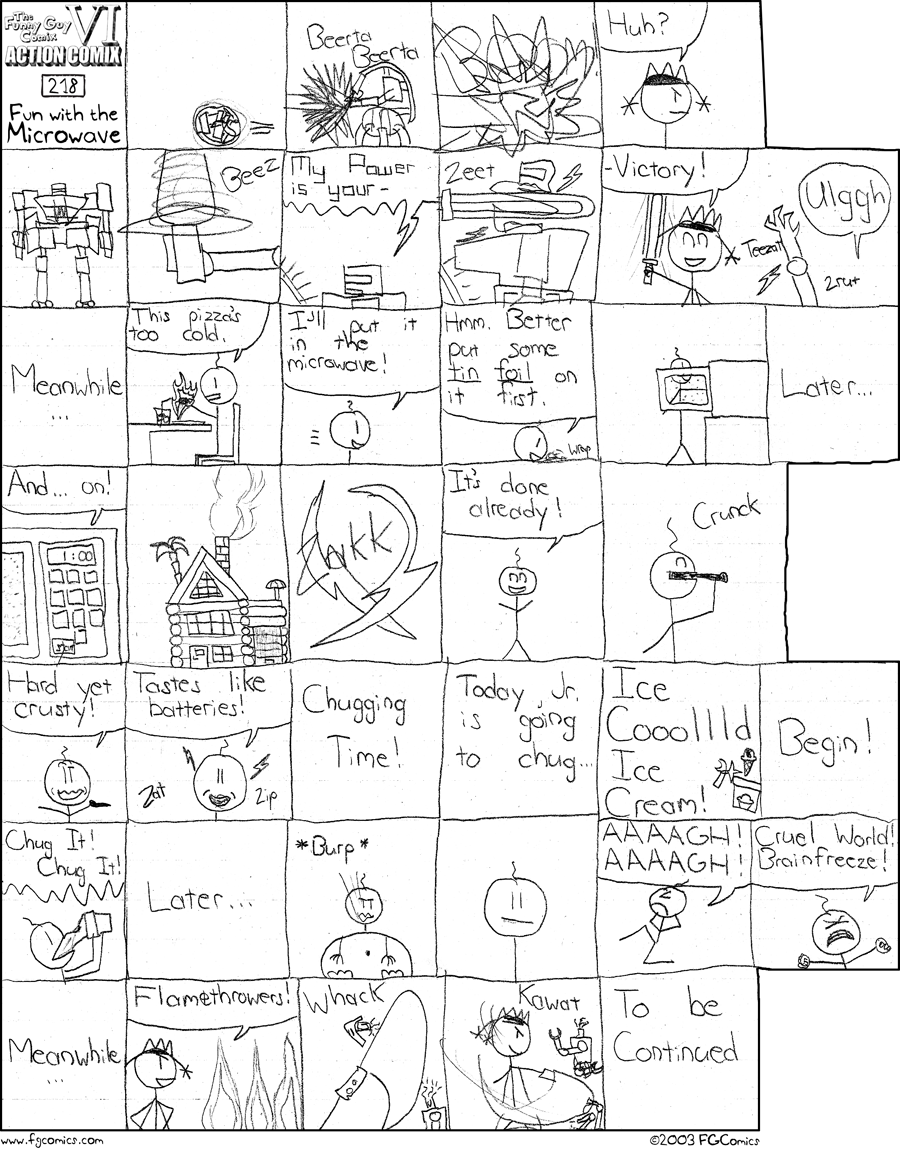 The
Funny Guy
Comix
VI
ACTION COMIX
218
Fun with the
Microwave
Beerta
Beerta
Huh?
Beez
My Power
is your-
Zeet
-Victory!
Teezat
Ulggh
Zrut
Meanwhile
...
This pizza's
too cold.
I'll put it
in the
microwave!
Hmm. Better
put some
tin foil on
it first.
Wrap
Later...
And... on!
1:00
Zakk
It's done
already!
Crunck
Hard yet
crusty!
Tastes like
batteries!
Zat
Zip
Chugging
Time!
Today, Jr.
is going
to chug...
Ice
Cooollld
Ice
Cream!
Begin!
Chug It!
Chug It!
Later...
*Burp*
AAAAGH!
AAAAGH!
Cruel World!
Brainfreeze!
Meanwhile
...
Flamethrowers!
Whack
Kawat
To be
Continued
www.fgcomics.com
©2003 FGComics